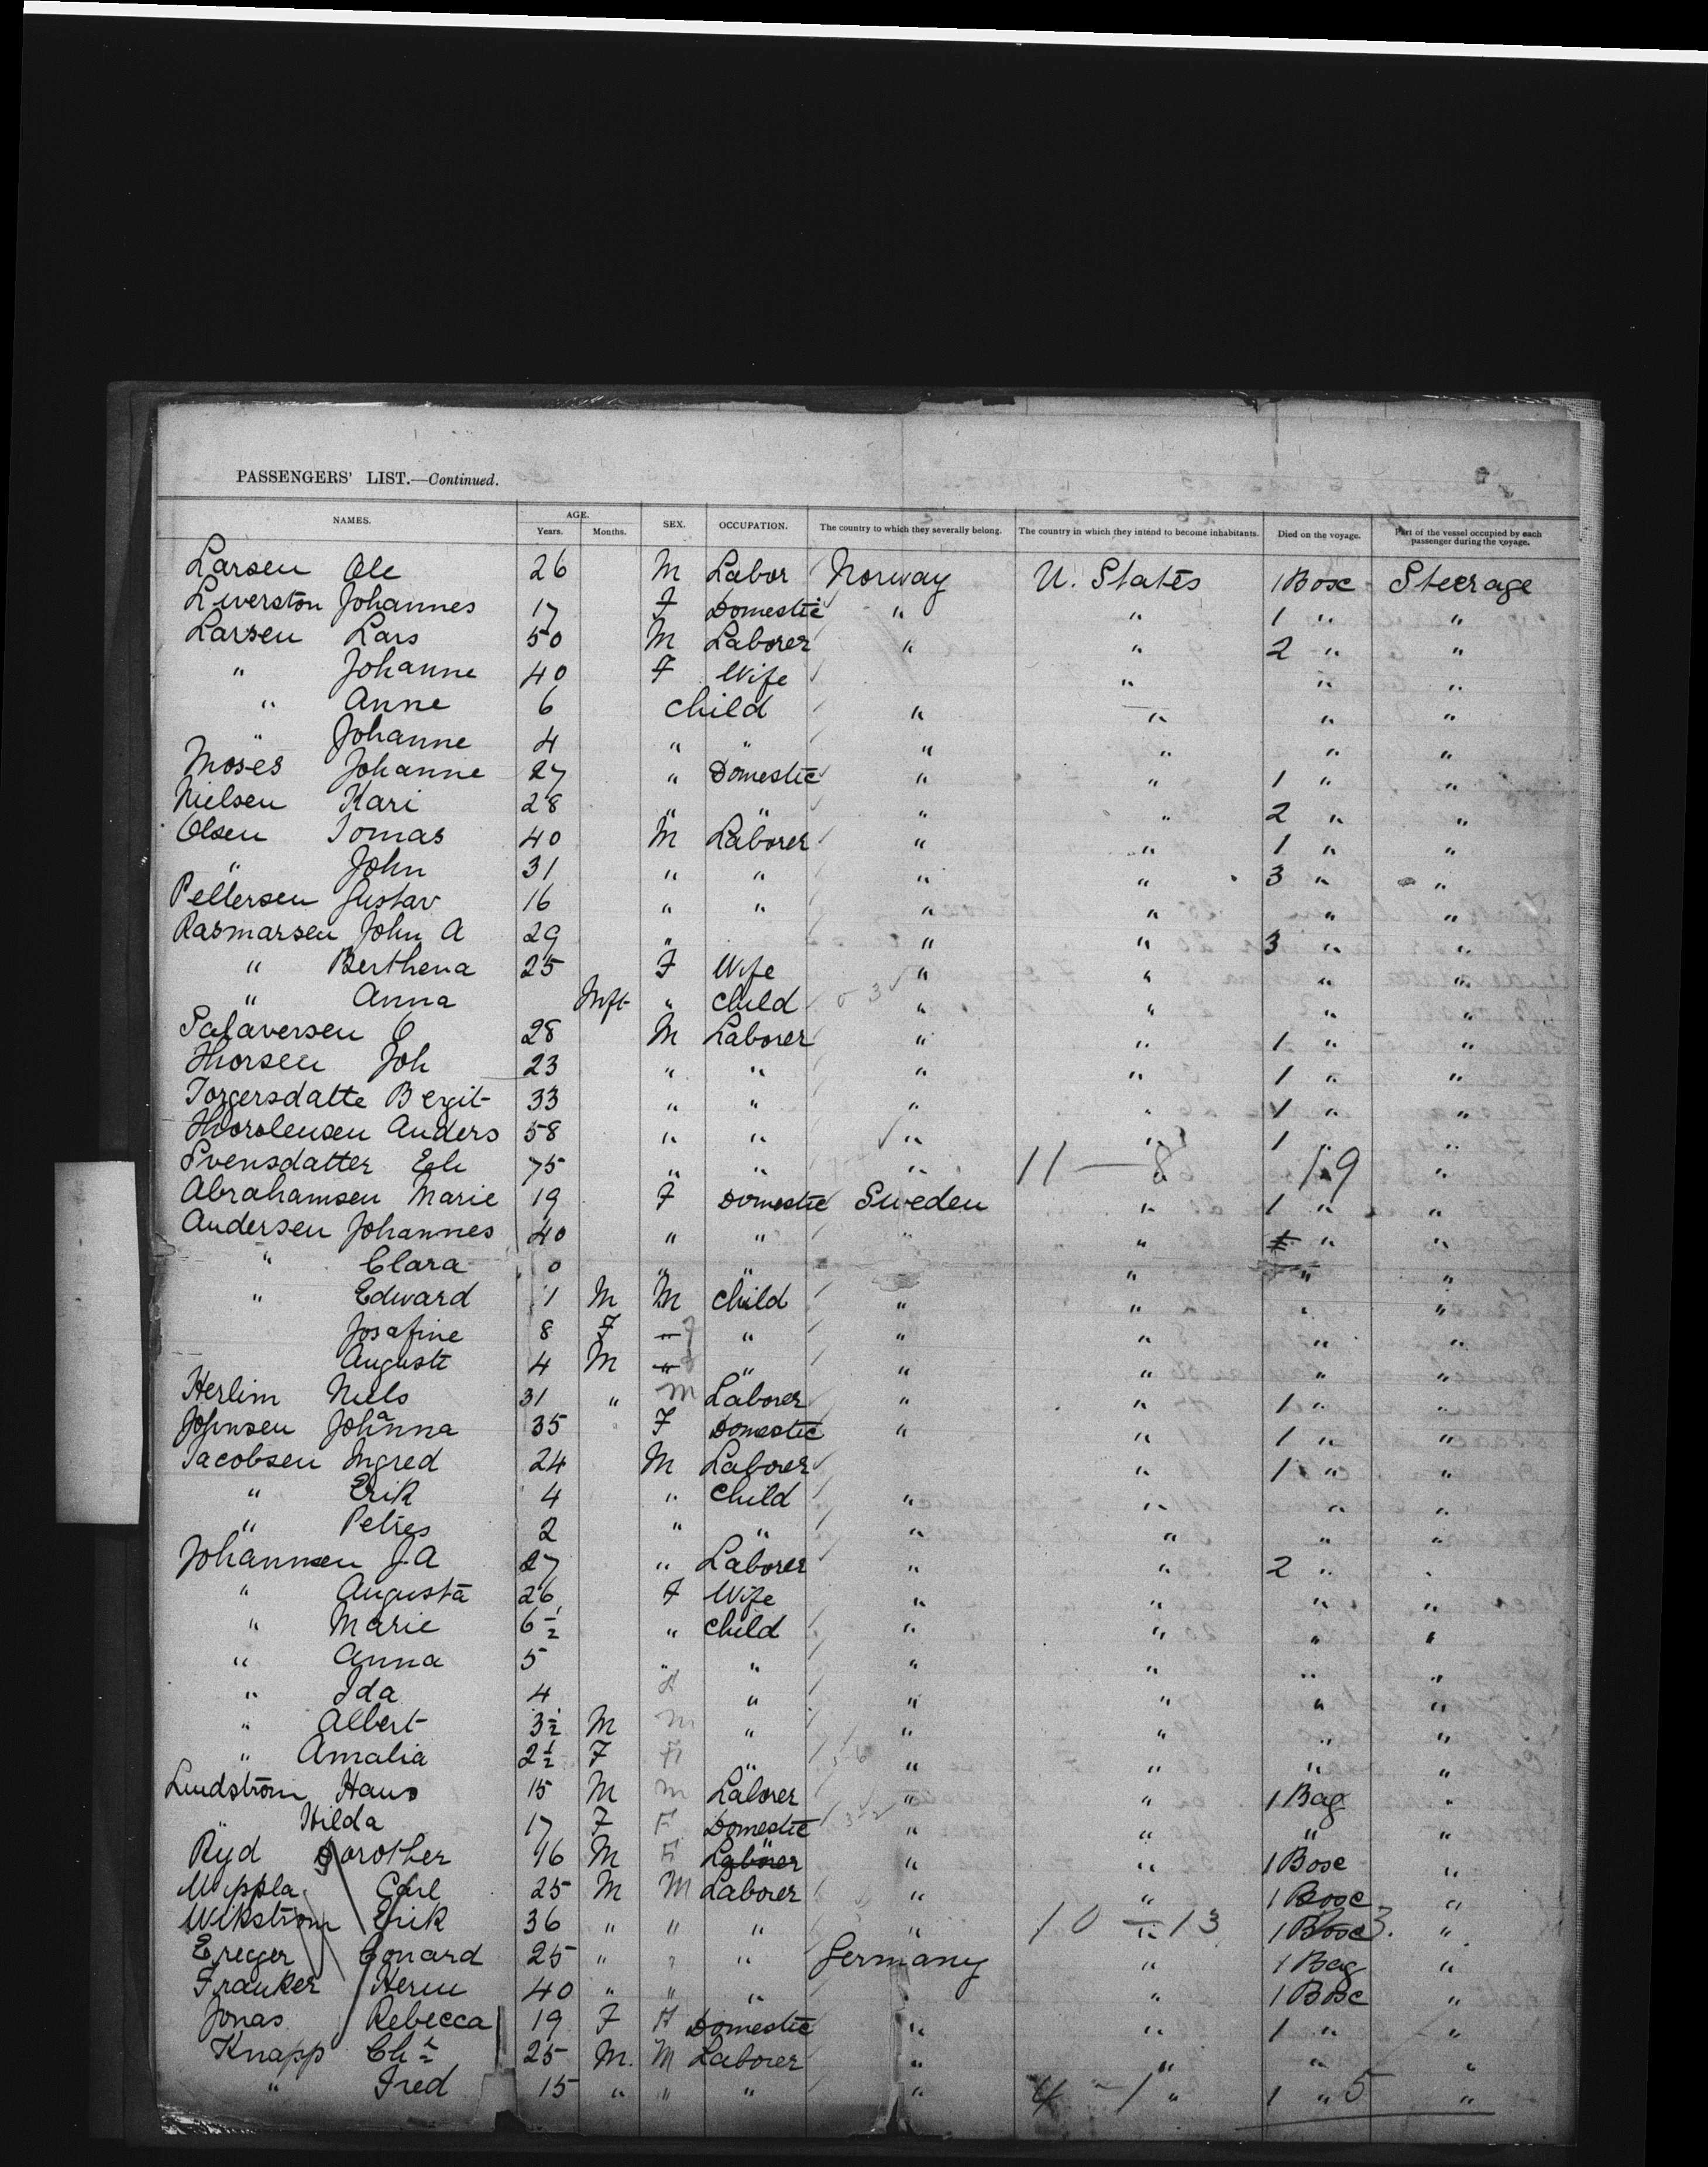 PASSENGERS' LIST.—Continued.
NAMES. AGE. Years. Months. SEX. OCCUPATION. The country to which they severally belong. The country in which they intend to become inhabitants. Died on the voyage. Part of the vessel occupied by each passenger during the voyage.
Larsen Ole 26 M Labor Norway U. States 1 Box Steerage
Johannes 17 F Domestic " " 1 " "
Larsen Lars 50 M Laborer " " 2 " "
" Johanne 40 F Wife " " "
" Anne 6 Child " " " "
" Johanne 4 " " " " " "
Moses Johanne 27 " Domestic " " 1 " "
Nielsen Kari 28 " " " " 2 " "
Olsen Tomas 40 M Laborer " " 1 " "
" John 31 " " " " 3 " "
Pettersen Gustav 16 " " " " " "
Rasmarsen John A 29 " " " 3 " "
" Berthena 25 F Wife " " " "
" Anna Inft " Child " " " "
O 28 M Laborer " " 1 " "
Thorsen Joh 23 " " " " 1 " "
Torgersdatte Bergit 33 " " " " 1 " "
Anders 58 " " " " 1 " "
Svensdatter 75 " " " 11 — 8 " 19 "
Abrahamsen Marie 19 F Domestic Sweden " 1 " "
Andersen Johannes 40 " " " " " "
" Clara 0 " " " " "
" Edward 1 M M Child " " " "
Josafine 8 F " " " " "
August 4 M " " " " "
Herlim Niels 31 " M Laborer " " 1 " "
Johnsen Johanna 35 F Domestic " " 1 " "
Jacobsen Ingred 24 M Laborer " 1 " "
" Erik 4 " Child " " " "
" Petres 2 " " " " " "
Johannsen J A 27 " Laborer " " 2 " "
" Augusta 26 F Wife " " " "
" Marie 6½ " Child " " " "
" Anna 5 " " " " " "
" Ida 4 F " " " " "
" Albert 3½ M M " " " " "
" Amalia 2½ F F " " " " "
Lundström Hans 15 M M Laborer " " 1 Bag "
Hilda 17 F F Domestic " " " "
Ryd Dorother 16 M F Laborer " " 1 Box "
Carl 25 M M Laborer " " 1 Box "
Wikström Erik 36 " " " " 10 — 13 1 Box 3. "
Ereger Conard 25 " " " Germany " 1 Bag "
Franker Herm 40 " " " " 1 Box "
Jonas Rebecca 19 F F Domestic " " 1 " "
Knapp Chs 25 M. M Laborer " " " "
" Fred 15 " " " " 4 - 1 " 1 " 5 "